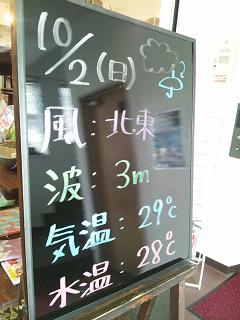 10/2(日)
風:北東
波:3m
気温:29℃
水温:28℃